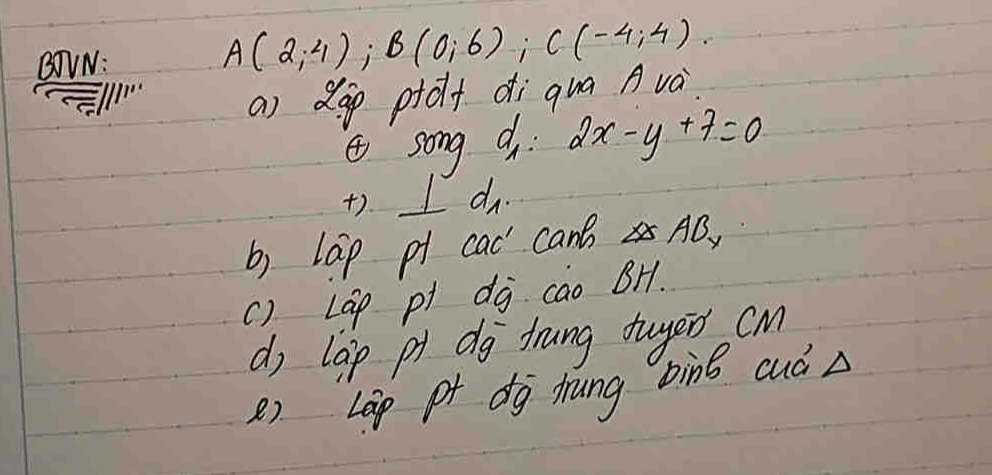 BTVN: A(2;4); B(0;6); C(-4;4).
a) Lập ptđt đi qua A và
+) song d₁: 2x-y+7=0
+) ⊥ d₁.
b) lập pt các cạnh AB,
c) Lập pt đg cao BH.
d) lập pt đg trung tuyến CM
e) Lập pt đg trung bình của Δ